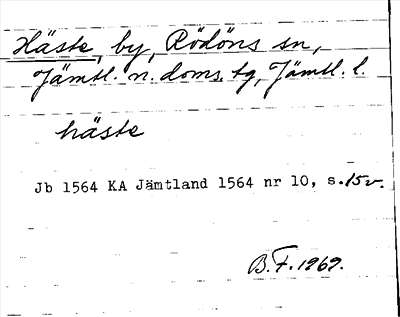 Häste, by, Rödöns sn,
Jämtl. n. doms. tg, Jämtl. l.
häste
Jb 1564 KA Jämtland 1564 nr 10, s. 15v.
B.F. 1969.